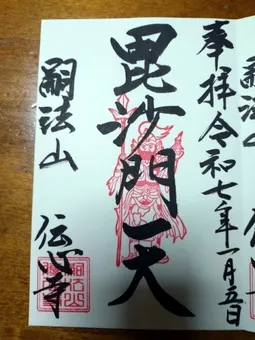 奉拝令和七年一月五日
毘沙門天
嗣法山 伝心寺